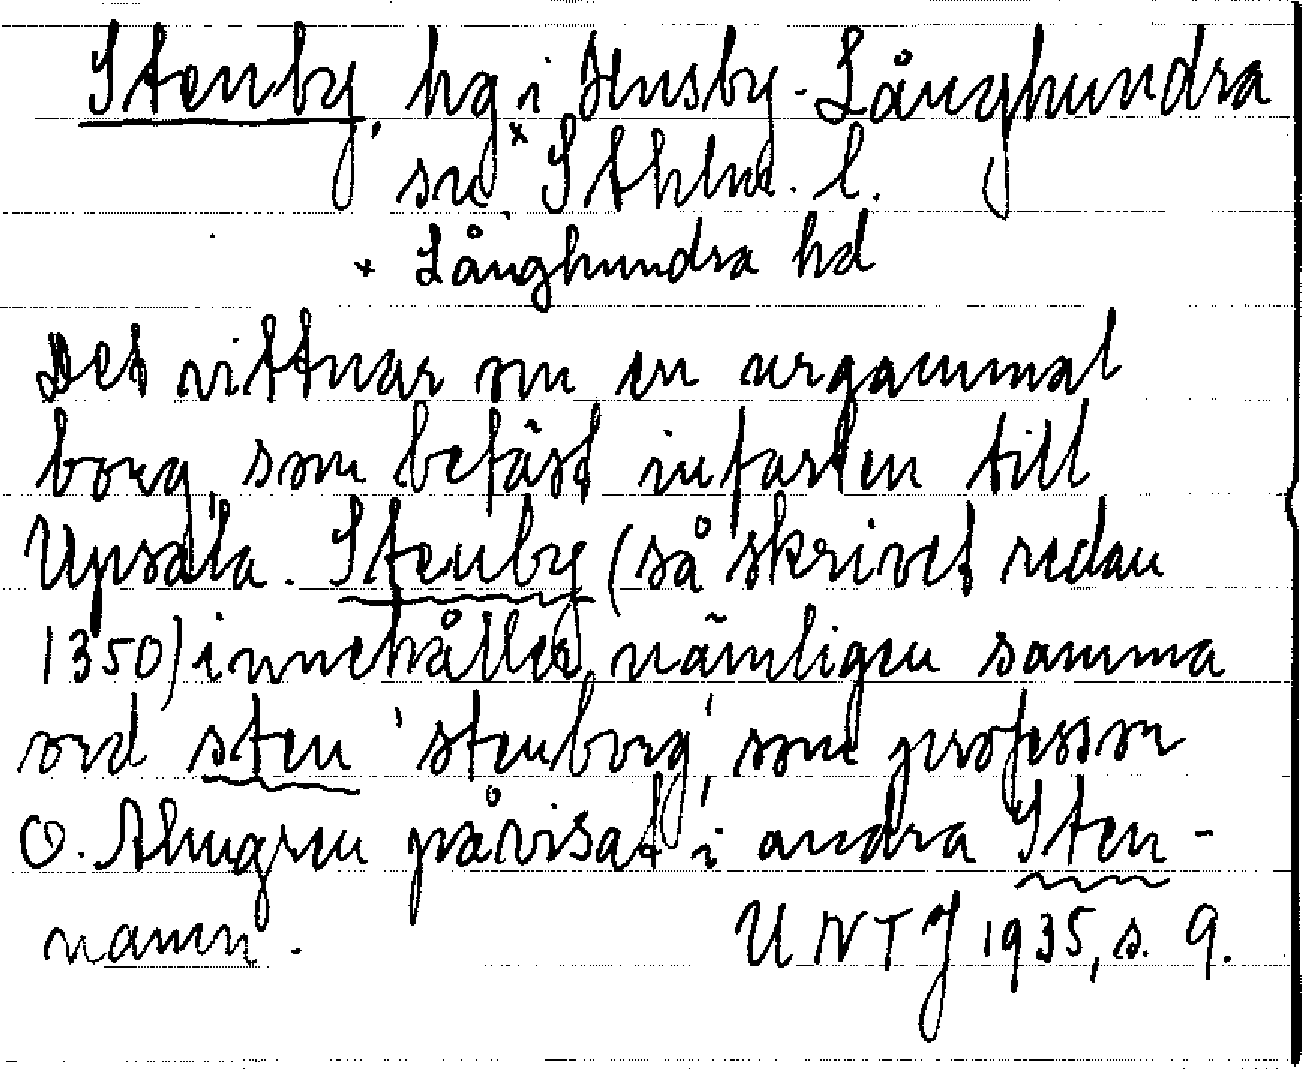 Stenby, hg i Husby-Långhundra
sn * Sthlm. l.
* Långhundra hd
Det vittnar om en urgammal
borg, som befäst infarten till
Upsala. Stenby (så skrivet redan
1350) innehåller nämligen samma
ord sten 'stenborg', som professor
O. Almgren påvisat i andra Sten-
namn. UNTJ 1935, s. 9.